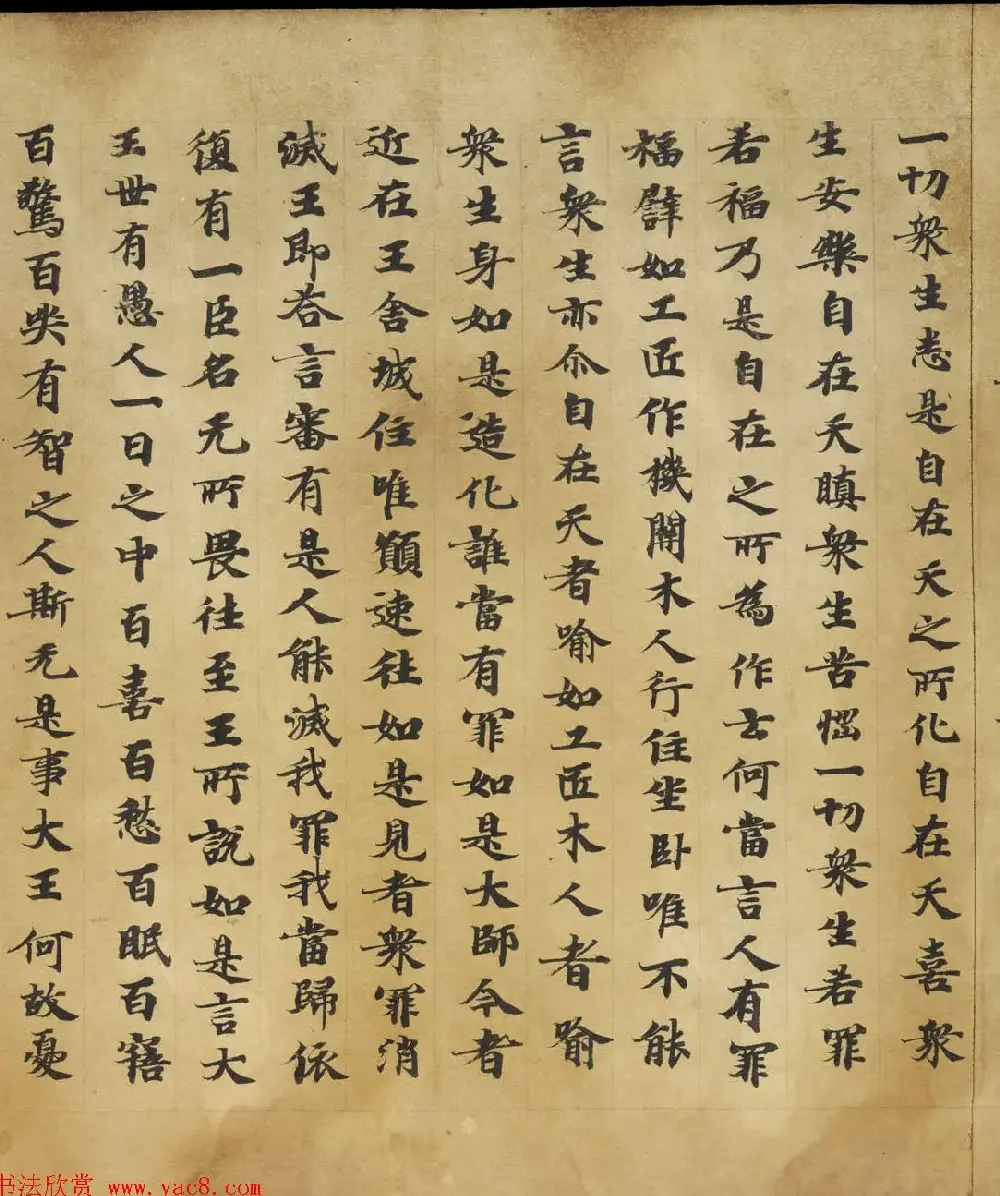 一切衆生悉是自在天之所化自在天喜衆
生安樂自在天瞋衆生苦惱一切衆生若罪
若福乃是自在之所為作云何當言人有罪
福譬如工匠作機關木人行住坐卧唯不能
言衆生亦尒自在天者喻如工匠木人者喻
衆生身如是造化誰當有罪如是大師今者
近在王舍城住唯願速往如是見者衆罪消
滅王即荅言審有是人能滅我罪我當歸依
復有一臣名无所畏往至王所說如是言大
王世有愚人一日之中百喜百愁百眠百寤
百驚百哭有智之人斯无是事大王何故憂
书法欣赏 www.yac8.com